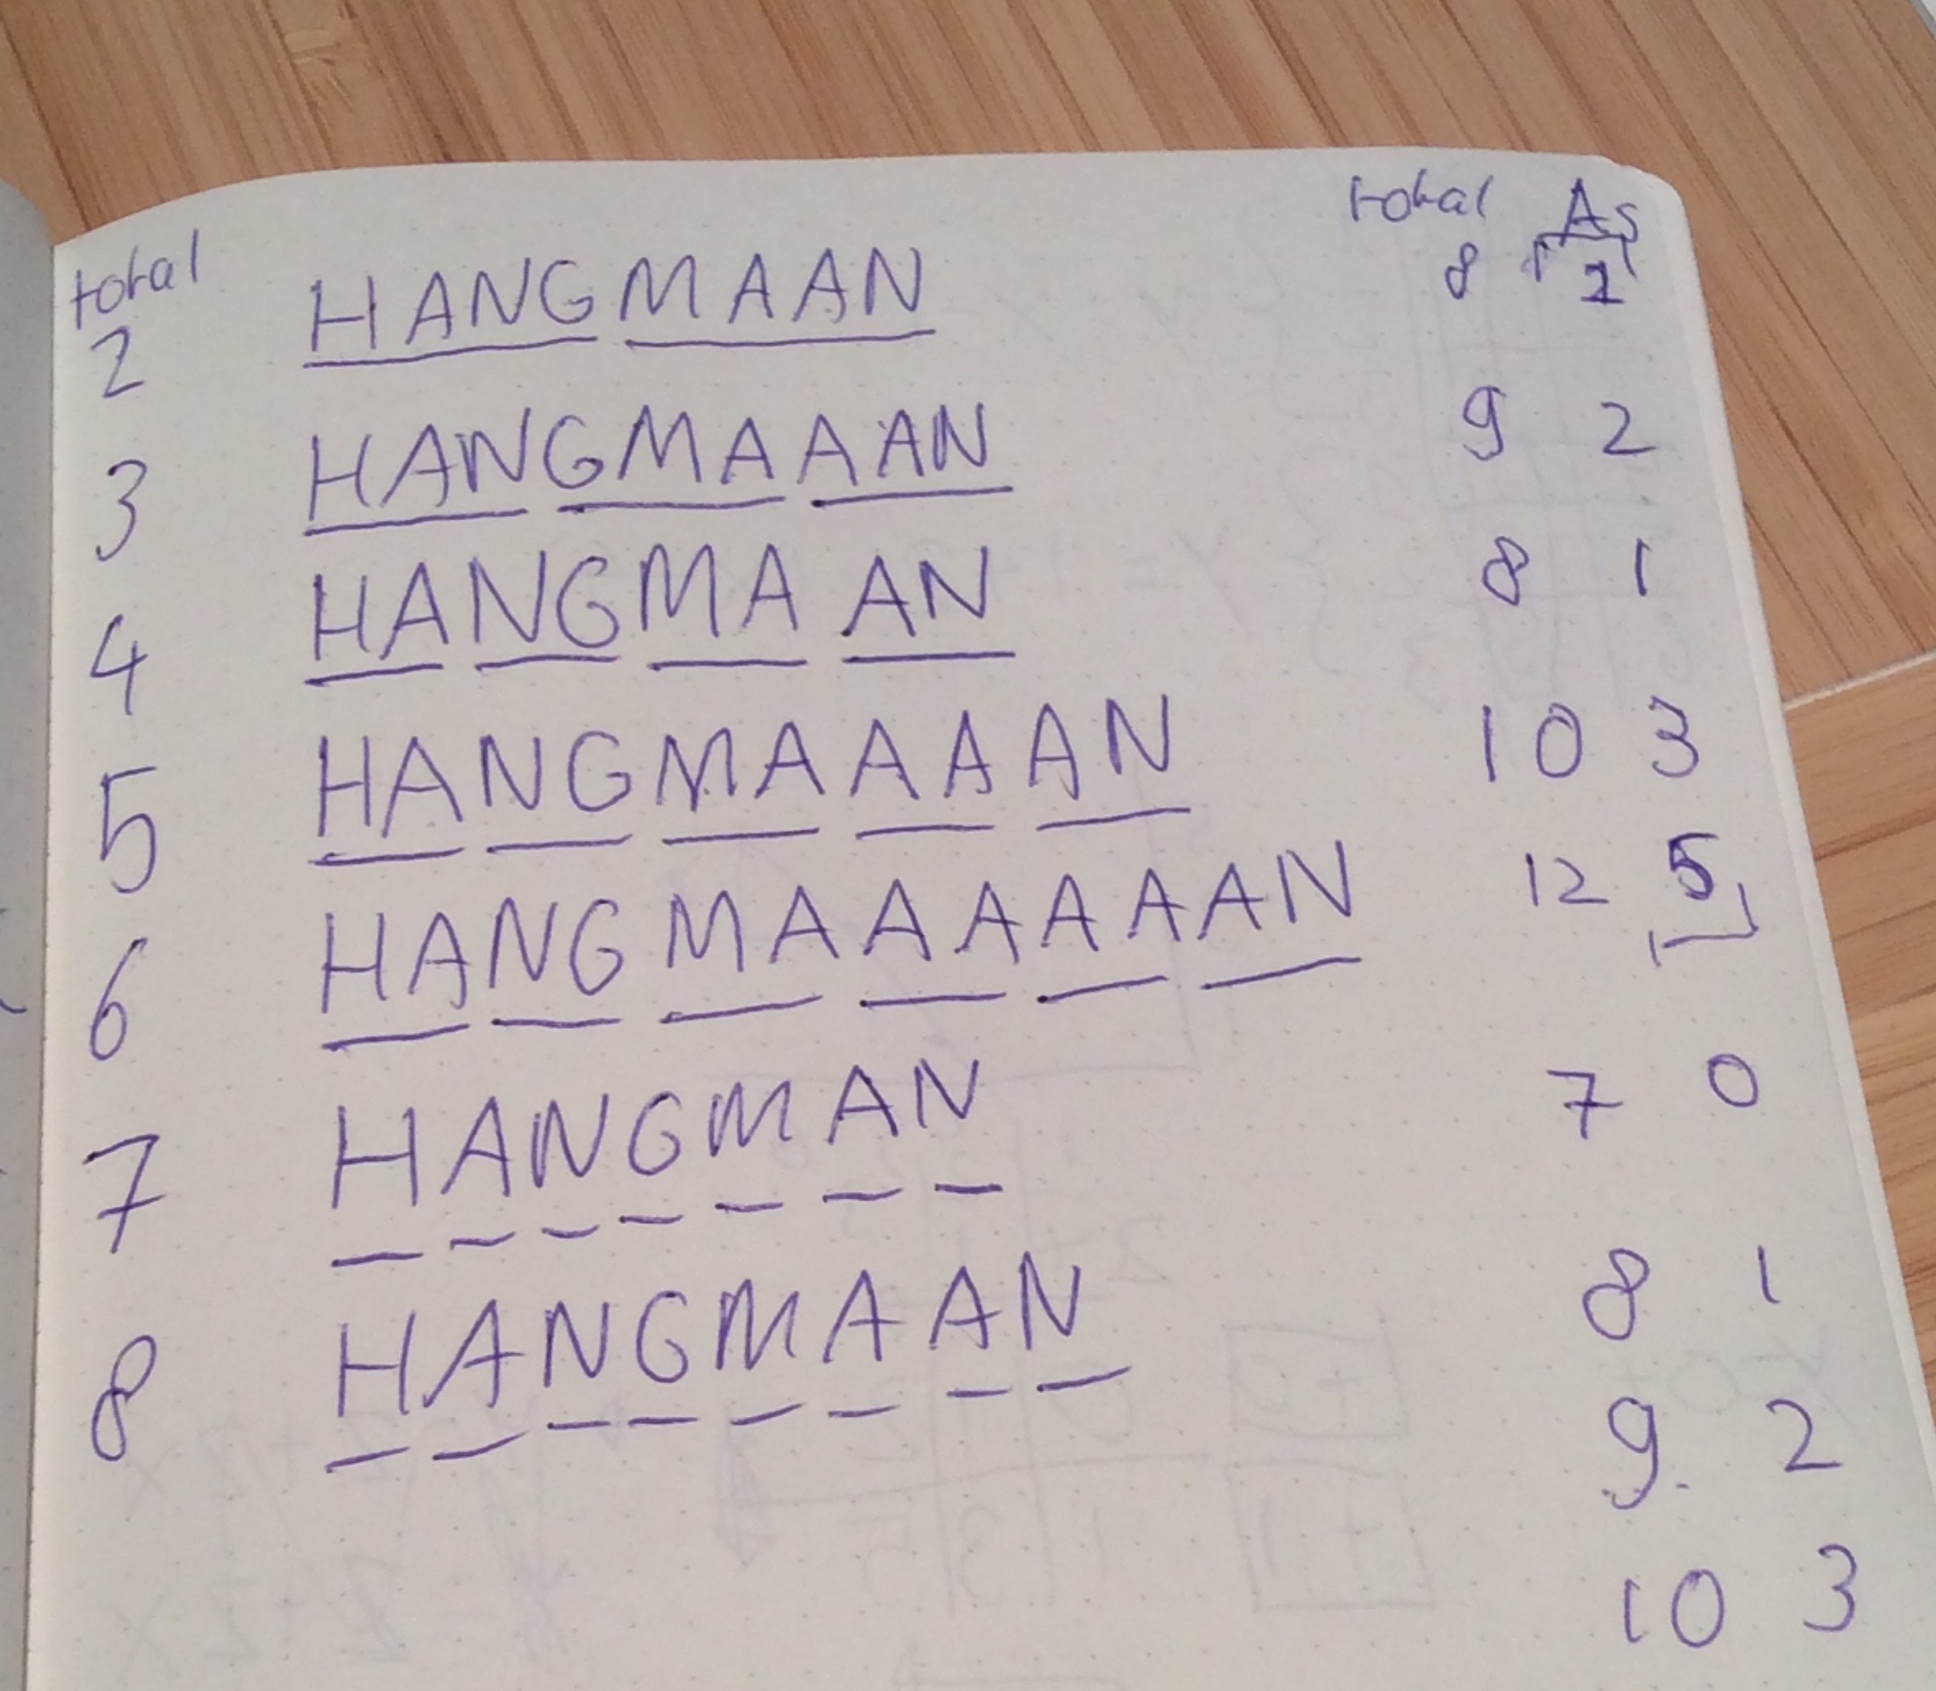 total total As
2 HANGMAAN 8 1
3 HANGMAAAAN 9 2
4 HANGMAAN 8 1
5 HANGMAAAAN 10 3
6 HANGMAAAAAAN 12 5
7 HANGMAN 7 0
8 HANGMAAN 8 1
9 2
10 3